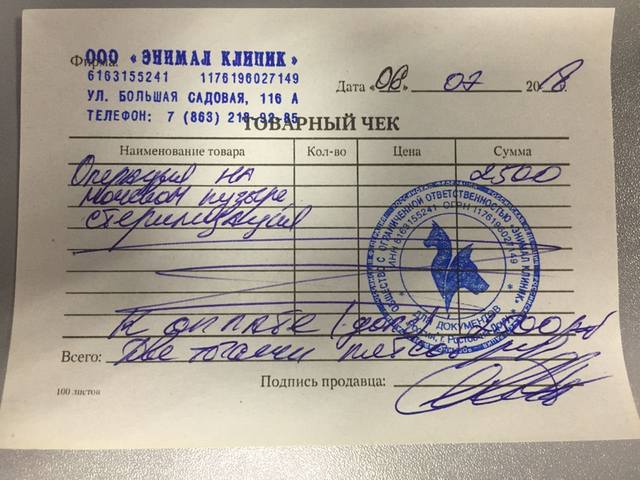 Фирма ООО «ЭНИМАЛ КЛИНИК»
6163155241 1176196027149
УЛ. БОЛЬШАЯ САДОВАЯ, 116 А
ТЕЛЕФОН: 7 (863) 218-92-85
Дата «08» 07 2018
ТОВАРНЫЙ ЧЕК
Наименование товара Кол-во Цена Сумма
Операция на 2500
мочевом пузыре
стерилизация
ОБЩЕСТВО С ОГРАНИЧЕННОЙ ОТВЕТСТВЕННОСТЬЮ «ЭНИМАЛ КЛИНИК»
ИНН 6163155241 ОГРН 1176196027149
ДЛЯ ДОКУМЕНТОВ
Россия, г. Ростов-на-Дону
К оплате
Всего: Две тысячи пятьсот
Подпись продавца:
100 листов